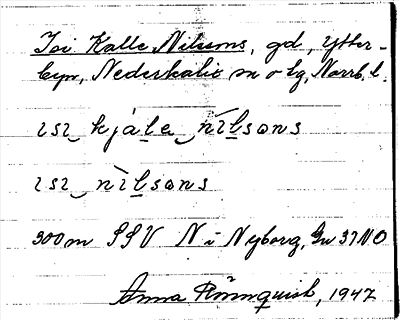 Isi Kalle Nilssons, gd, Ytter-
byn, Nederkalix sn o tg, Norrb. l.
ɪsɪ kjàle nìlsɷns
ɪsɪ nìlsɷns
300 m SSV N i Nyborg, Gu 37 NO
Anna Rönnquist, 1947